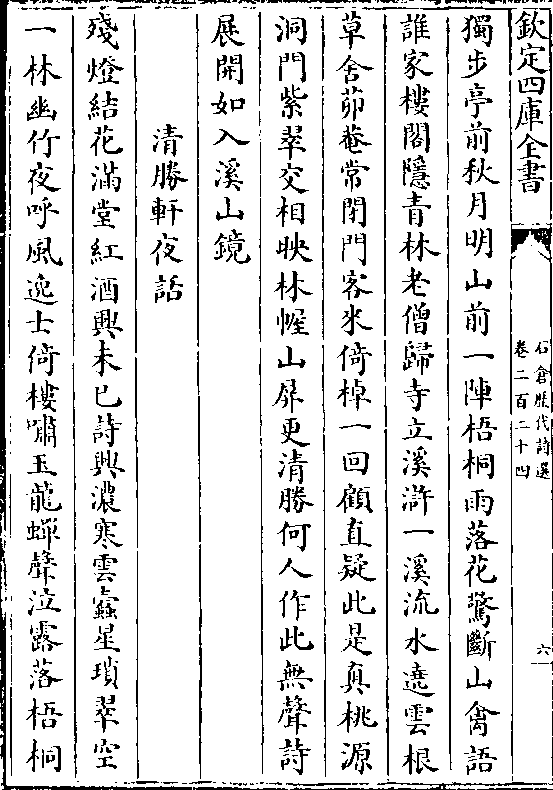 欽定四庫全書
石倉歷代詩選
卷二百二十四
六
獨步亭前秋月明山前一陣梧桐雨落花驚斷山禽語
誰家樓閣隱青林老僧歸寺立溪滸一溪流水遶雲根
草舍茆菴常閉門客來倚棹一回顧直疑此是真桃源
洞門紫翠交相映林幄山屏更清勝何人作此無聲詩
展開如入溪山鏡
清勝軒夜話
殘燈結花滿堂紅酒興未已詩興濃寒雲蠧星瑣翠空
一林幽竹夜呼風逸士倚樓嘯玉龍蟬聲泣露落梧桐